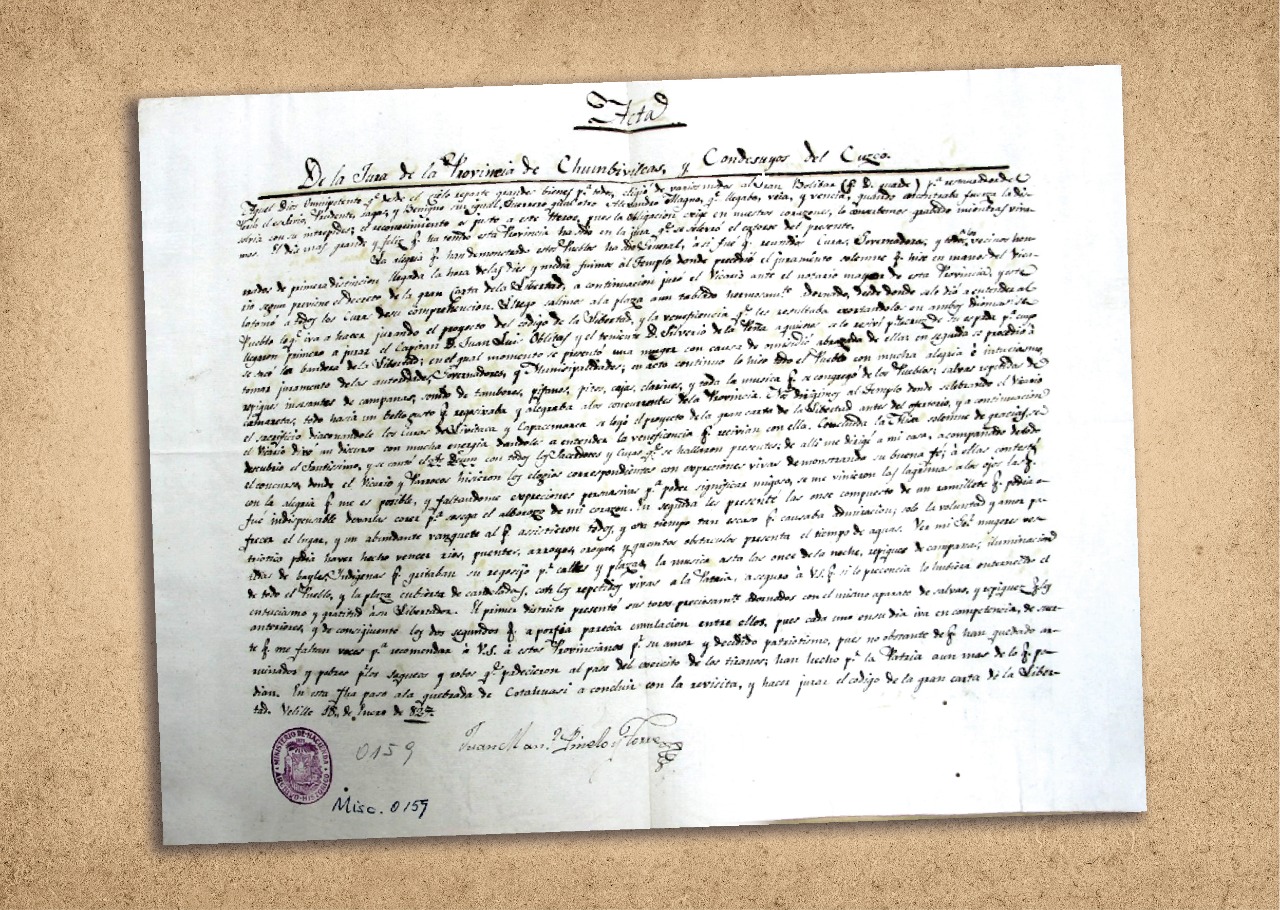 Acta
De la Jura de la Provincia de Chumbivilcas, y Condesuyos del Cuzco.
Aquel Dios Omnipotente qᵉ desde el Cielo reparte grandes bienes pª todos, eligió de varios modos al Gran Bolibar (q. D. guarde) pª
Sabio, Prudente, sagas, y Benigno sin igual, Guerrero qual otro Alexandro Magno, qᵉ llegaba, veia, y vencia, quando
con su intrepides; el reconocimiento es justo a este Heroe, pues la Obligacion exije en nuestros corazones, lo
mos. El dia mas grande y feliz qᵉ ha tenido esta Provincia ha sido en la jura qᵉ se
La alegria qᵉ han demonstrado estos Pueblos ha sido General, asi fué qᵉ reunidos Curas, Governadores, y todos los vecinos hon-
rados de primera distincion llegada la hora de las dies y media fuimos al Templo donde precedió el juramento solemne qᵉ hise en manos del Vica-
rio segun previene el decreto de la gran Carta de la Libertad, a continuacion juró el Vicario ante el notario mayor de esta Provincia, y este
tomó a todos los Curas de su comprehencion. Luego salimos a la plaza a un tablado hermosamᵗᵉ adornado, desde donde se le dió a entender al
Pueblo lo qᵉ iva a hacer jurando el proyecto del codigo de la Libertad, y la veneficencia qᵉ les resultaba exortandolos en ambos
llegaron primero a jurar el Capitan D. Juan Luis Oblitas y el teniente D. Silverio de la Peña
se sacó la bandera de la Libertad; en el qual momento se presentó una muger con causa de omisidio abrazada de ella; en seguida se procedió á
tomar juramento de las autoridades, Governadores, y Municipalidades; en acto continuo lo hiso todo el Pueblo con mucha alegria é intuciasmo
repiques incesantes de campanas, sonido de tambores, pifanos, pitos, cajas, clarines, y toda la musica qᵉ se congregó de los Pueblos; salvas repetidas de
camaretas, todo hacia un bello gusto qᵉ regosivaba y alegraba a los concurrentes de la Provincia. Nos dirigimos al Templo donde selebrando el Vicario
el sacrificio diaconandole los Curas de Livitaca y Capacmarca se leyó el proyecto de la gran carta de la Libertad antes del ofertorio, y a continuacion
el Vicario dixo un discurso con mucha energia dandoles a entender la veneficencia qᵉ recivian con ella. Concluida la Misa solemne de gracias, se
descubrió el Santissimo, y se cantó el Te Deum con todos los Sacerdotes y Curas qᵉ se hallaron presentes; de alli me dirigi a mi casa, acompañado de todo
el concurso, donde el Vicario y Parrocos hisieron los elogios correspondientes con expresiones vivas demonstrando su buena fe; á ellas contesté
con la alegria qᵉ me es posible, y faltandome expresiones persuasivas pª poder significar mi goso, se me vinieron las lagrimas a los ojos las qᵉ
fue indispensable dexarlas correr pª sosega el alboroso de mi corazon. En seguida les presenté las onse compuesto de un ramillete qᵉ podia o-
frecer el lugar, y un abundante vanquete al qᵉ assistieron todos, y era tiempo tan escaso qᵉ causaba admiracion; solo la voluntad y amor pa-
triotico podia haver hecho vencer rios, puentes, arroyos, oroyas, y quantos obstaculos presenta el tiempo de aguas. Ver mi Sᵒʳ mugeres ves-
tidas de bayles, Indigenas qᵉ gritaban su regosijo pʳ calles y plazas, la musica asta las once de la noche, repiques de campanas, iluminacion
de todo el Pueblo, y la plaza cubierta de candeladas, con los repetidos vivas a la Patria, aseguro á V.S. qᵉ si lo precencia lo hubiera enternecido el
entuciasmo y gratitud á su Libertador. El primer districto presentó sus toros preciosamᵗᵉ adornados con el mismo aparato de salvas, y repiques qᵉ los
anteriores, y de consiguiente los dos segundos qᵉ a porfia parecia emulacion entre ellos, pues cada uno en su dia iva en competencia, de suer-
te qᵉ me faltan voces pª recomendar á V.S. á estos Provincianos pʳ su amor y decidido patriotismo, pues no obstante de qᵉ han quedado ar-
ruinados y pobres pʳ los saqueos y robos qᵉ padecieron al paso del exercito de los tiranos; han hecho pʳ la Patria aun mas de lo qᵉ po-
dian. En esta fha paso a la quebrada de Cotahuasi a concluir con la revisita, y hacer jurar el codigo de la gran carta de la Liber-
tad. Velille 18, de Enero de 827.
Juan Manˡ Pinelo y Torre
MINISTERIO DE HACIENDA
ARCHIVO HISTORICO
0159
Misc. 0159